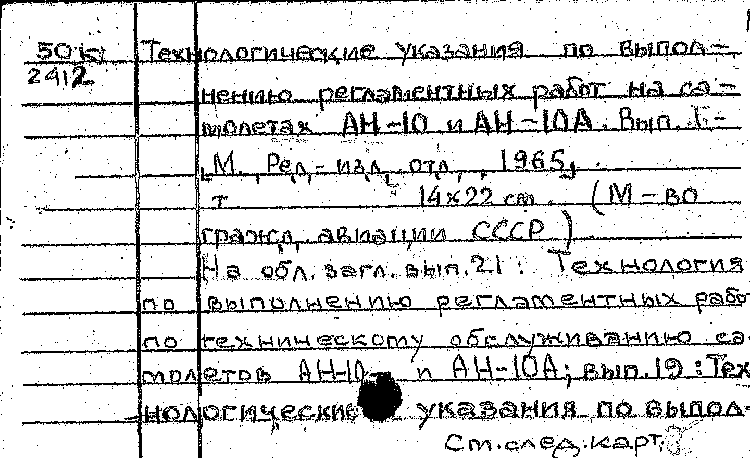 50к Технологические указания по выпол-
2412
нению регламентных работ на са-
молетах АН-10 и АН-10А. Вып. 1-
М., Ред.-изд. отд., 1965.
т 14х22 cm. (М-во
гражд. авиации СССР)
На обл. загл. вып. 21: Технология
по выполнению регламентных рабо
по техническому обслуживанию са-
молетов АН-10 и АН-10А; вып. 19: Тех
нологические указания по выпол-
См. след. карт.